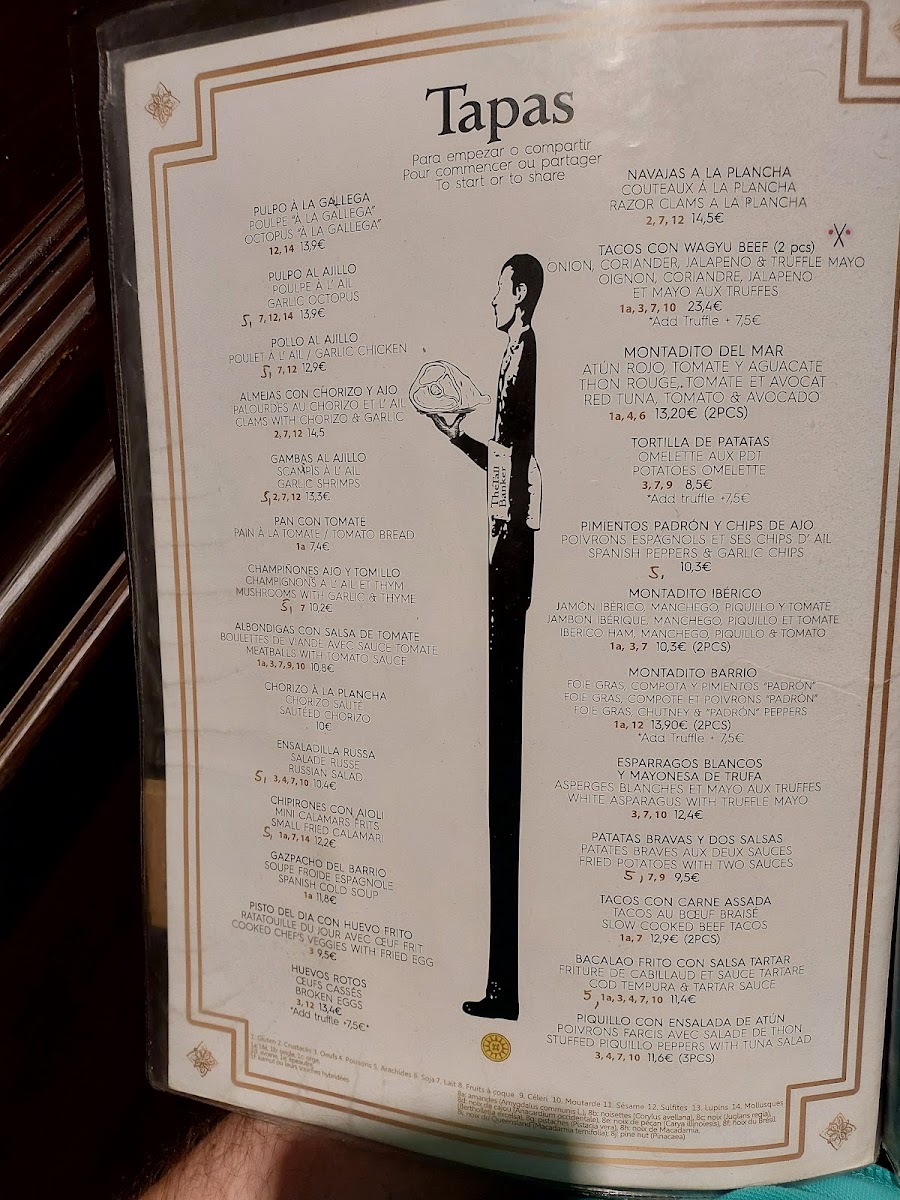 Tapas
Para empezar o compartir
Pour commencer ou partager
To start or to share
PULPO À LA GALLEGA
POULPE "À LA GALLEGA"
OCTOPUS "À LA GALLEGA"
12, 14 13,9€
PULPO AL AJILLO
POULPE À L' AIL
GARLIC OCTOPUS
5, 7, 12, 14 13,9€
POLLO AL AJILLO
POULET À L' AIL / GARLIC CHICKEN
5, 7, 12 12,9€
ALMEJAS CON CHORIZO Y AJO
PALOURDES AU CHORIZO ET L' AIL
CLAMS WITH CHORIZO & GARLIC
2, 7, 12 14,5
GAMBAS AL AJILLO
SCAMPIS À L' AIL
GARLIC SHRIMPS
5, 2, 7, 12 13,3€
PAN CON TOMATE
PAIN À LA TOMATE / TOMATO BREAD
1a 7,4€
CHAMPIÑONES AJO Y TOMILLO
CHAMPIGNONS A L' AIL ET THYM
MUSHROOMS WITH GARLIC & THYME
5, 7 10,2€
ALBONDIGAS CON SALSA DE TOMATE
BOULETTES DE VIANDE AVEC SAUCE TOMATE
MEATBALLS WITH TOMATO SAUCE
1a, 3, 7, 9, 10 10,8€
CHORIZO À LA PLANCHA
CHORIZO SAUTÉ
SAUTÉED CHORIZO
10€
ENSALADILLA RUSSA
SALADE RUSSE
RUSSIAN SALAD
5, 3, 4, 7, 10 10,4€
CHIPIRONES CON AIOLI
MINI CALAMARS FRITS
SMALL FRIED CALAMARI
5, 1a, 7, 14 12,2€
GAZPACHO DEL BARRIO
SOUPE FROIDE ESPAGNOLE
SPANISH COLD SOUP
1a 11,8€
PISTO DEL DIA CON HUEVO FRITO
RATATOUILLE DU JOUR AVEC ŒUF FRIT
COOKED CHEF'S VEGGIES WITH FRIED EGG
3 9,5€
HUEVOS ROTOS
ŒUFS CASSÉS
BROKEN EGGS
3, 12 13,4€
*Add truffle +7,5€*
TheTall
Banker
NAVAJAS A LA PLANCHA
COUTEAUX À LA PLANCHA
RAZOR CLAMS A LA PLANCHA
2, 7, 12 14,5€
TACOS CON WAGYU BEEF (2 pcs)
ONION, CORIANDER, JALAPENO & TRUFFLE MAYO
OIGNON, CORIANDRE, JALAPENO
ET MAYO AUX TRUFFES
1a, 3, 7, 10 23,4€
*Add Truffle + 7,5€
MONTADITO DEL MAR
ATÚN ROJO, TOMATE Y AGUACATE
THON ROUGE, TOMATE ET AVOCAT
RED TUNA, TOMATO & AVOCADO
1a, 4, 6 13,20€ (2PCS)
TORTILLA DE PATATAS
OMELETTE AUX PDT
POTATOES OMELETTE
3, 7, 9 8,5€
*Add truffle +7,5€
PIMIENTOS PADRÓN Y CHIPS DE AJO
POIVRONS ESPAGNOLS ET SES CHIPS D' AIL
SPANISH PEPPERS & GARLIC CHIPS
5, 10,3€
MONTADITO IBÉRICO
JAMÓN IBÉRICO, MANCHEGO, PIQUILLO Y TOMATE
JAMBON IBÉRIQUE, MANCHEGO, PIQUILLO ET TOMATE
IBERICO HAM, MANCHEGO, PIQUILLO & TOMATO
1a, 3, 7 10,3€ (2PCS)
MONTADITO BARRIO
FOIE GRAS, COMPOTA Y PIMIENTOS "PADRÓN"
FOIE GRAS, COMPOTE ET POIVRONS "PADRÓN"
FOIE GRAS, CHUTNEY & "PADRÓN" PEPPERS
1a, 12 13,90€ (2PCS)
*Add Truffle + 7,5€
ESPARRAGOS BLANCOS
Y MAYONESA DE TRUFA
ASPERGES BLANCHES ET MAYO AUX TRUFFES
WHITE ASPARAGUS WITH TRUFFLE MAYO
3, 7, 10 12,4€
PATATAS BRAVAS Y DOS SALSAS
PATATES BRAVES AUX DEUX SAUCES
FRIED POTATOES WITH TWO SAUCES
5, 7, 9 9,5€
TACOS CON CARNE ASSADA
TACOS AU BŒUF BRAISÉ
SLOW COOKED BEEF TACOS
1a, 7 12,9€ (2PCS)
BACALAO FRITO CON SALSA TARTAR
FRITURE DE CABILLAUD ET SAUCE TARTARE
COD TEMPURA & TARTAR SAUCE
5, 1a, 3, 4, 7, 10 11,4€
PIQUILLO CON ENSALADA DE ATÚN
POIVRONS FARCIS AVEC SALADE DE THON
STUFFED PIQUILLO PEPPERS WITH TUNA SALAD
3, 4, 7, 10 11,6€ (3PCS)
1. Gluten 2. Crustacés 3. Oeufs 4. Poissons 5. Arachides 6. Soja 7. Lait 8. Fruits à coque 9. Céleri 10. Moutarde 11. Sésame 12. Sulfites 13. Lupins 14. Mollusques
1a: blé, 1b: seigle, 1c: orge,
1d: avoine, 1e: épeautre,
1f: kamut ou leurs souches hybridées
8a: amandes (Amygdalus communis L.), 8b: noisettes (Corylus avellana), 8c: noix (Juglans regia),
8d: noix de cajou (Anacardium occidentale), 8e: noix de pécan (Carya illinoiesis), 8f: noix du Brésil
(Bertholletia excelsa), 8g: pistaches (Pistacia vera), 8h: noix de Macadamia,
8i: noix du Queensland (Macadamia ternifolia), 8j: pine nut (Pinacaea)